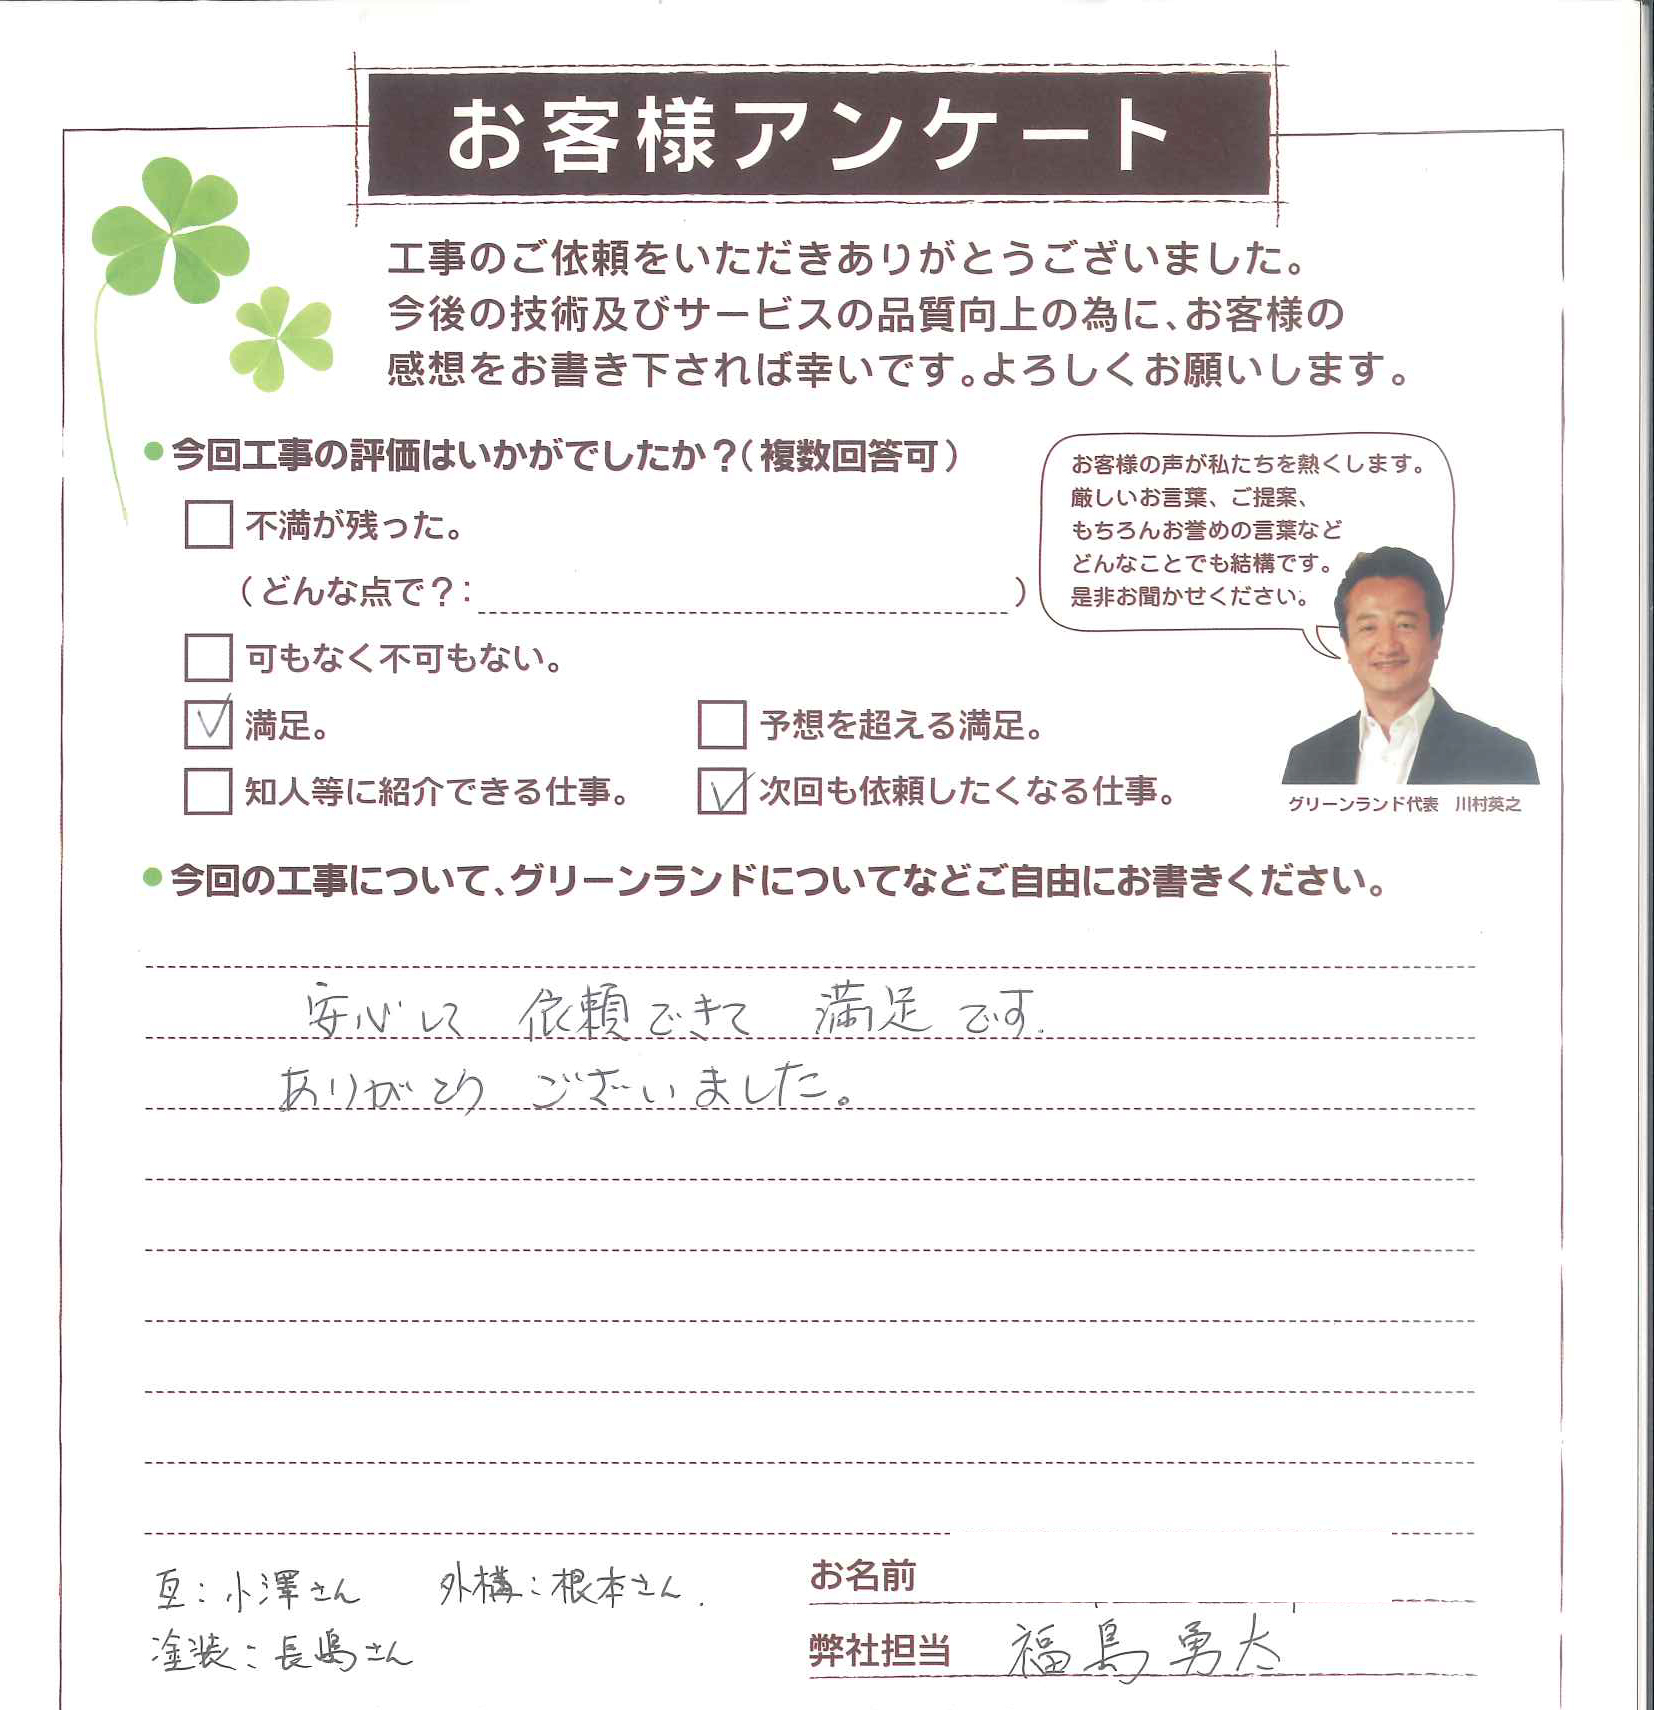 お客様アンケート
工事のご依頼をいただきありがとうございました。
今後の技術及びサービスの品質向上の為に、お客様の
感想をお書き下されば幸いです。よろしくお願いします。
●今回工事の評価はいかがでしたか?(複数回答可)
不満が残った。
(どんな点で?: )
可もなく不可もない。
満足。
予想を超える満足。
知人等に紹介できる仕事。
次回も依頼したくなる仕事。
お客様の声が私たちを熱くします。
厳しいお言葉、ご提案、
もちろんお誉めの言葉など
どんなことでも結構です。
是非お聞かせください。
グリーンランド代表 川村英之
●今回の工事について、グリーンランドについてなどご自由にお書きください。
安心して 依頼できて 満足です.
ありがとう ございました。
瓦:小澤さん 外構:根本さん.
塗装:長嶋さん
お名前
弊社担当 福島勇太